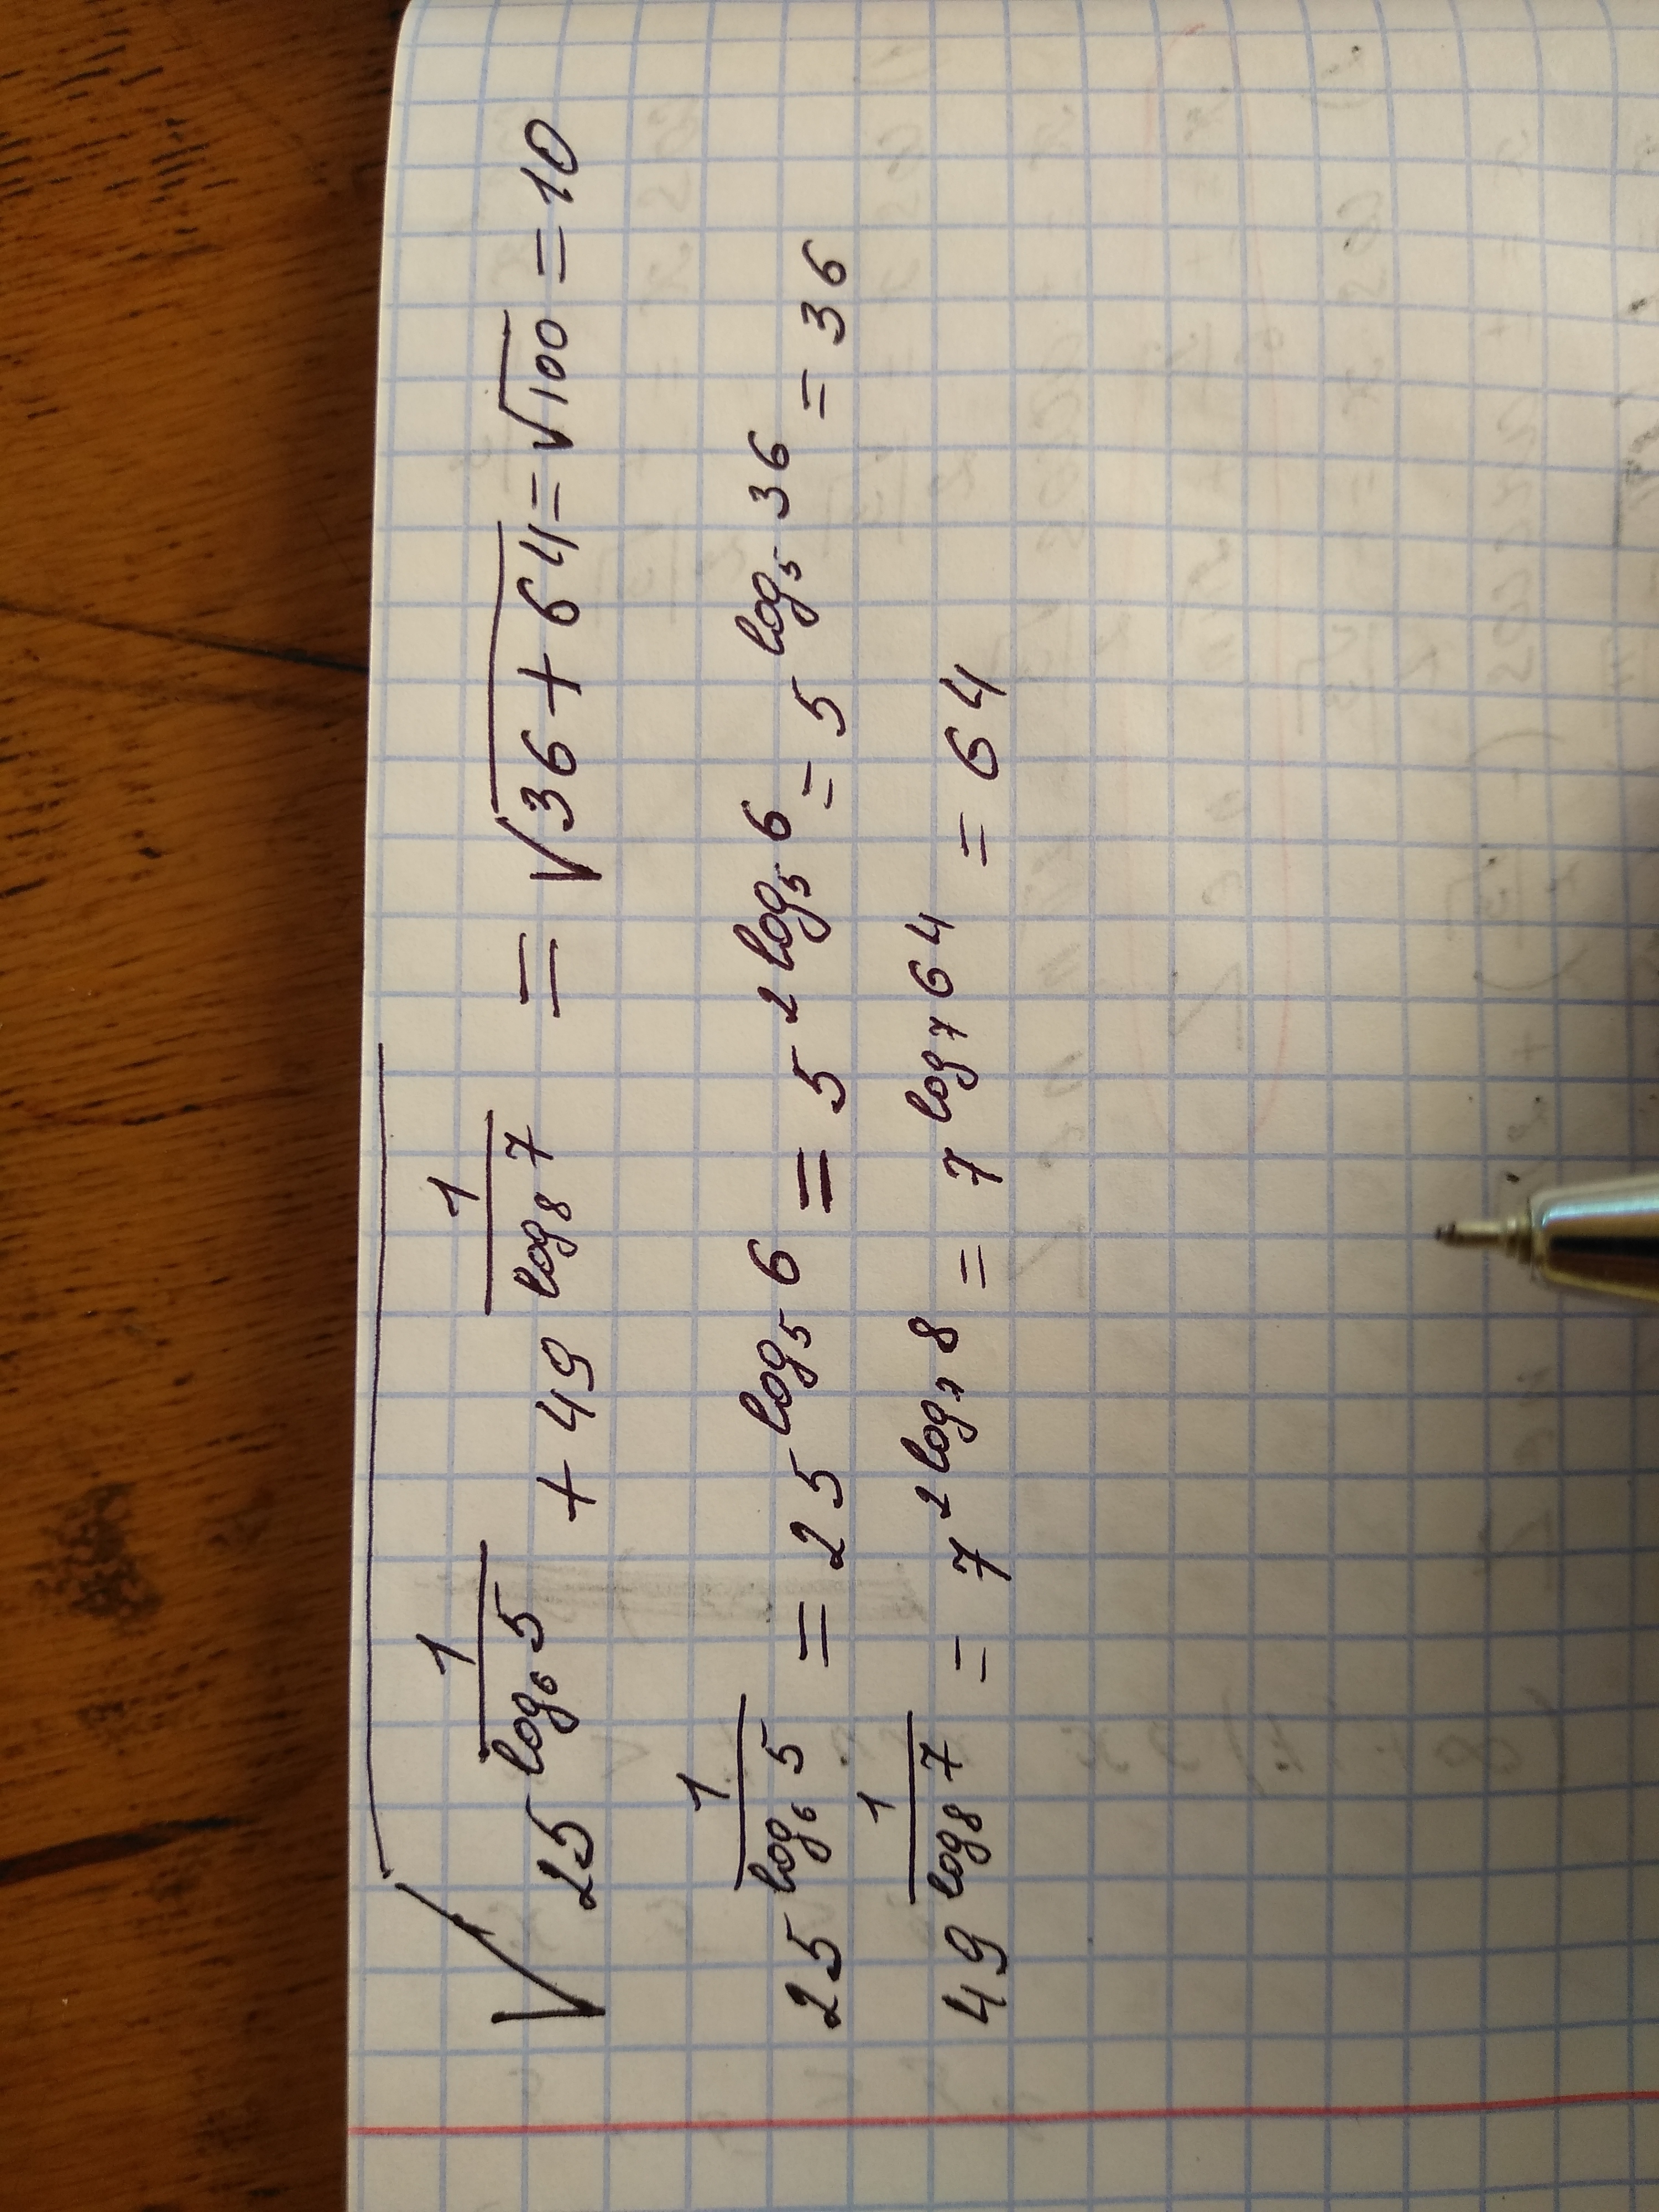 √(25^(1/log₆5) + 49^(1/log₈7)) = √(36+64) = √100 = 10
25^(1/log₆5) = 25^(log₅6) = 5^(2log₅6) = 5^(log₅36) = 36
49^(1/log₈7) = 7^(2log₇8) = 7^(log₇64) = 64